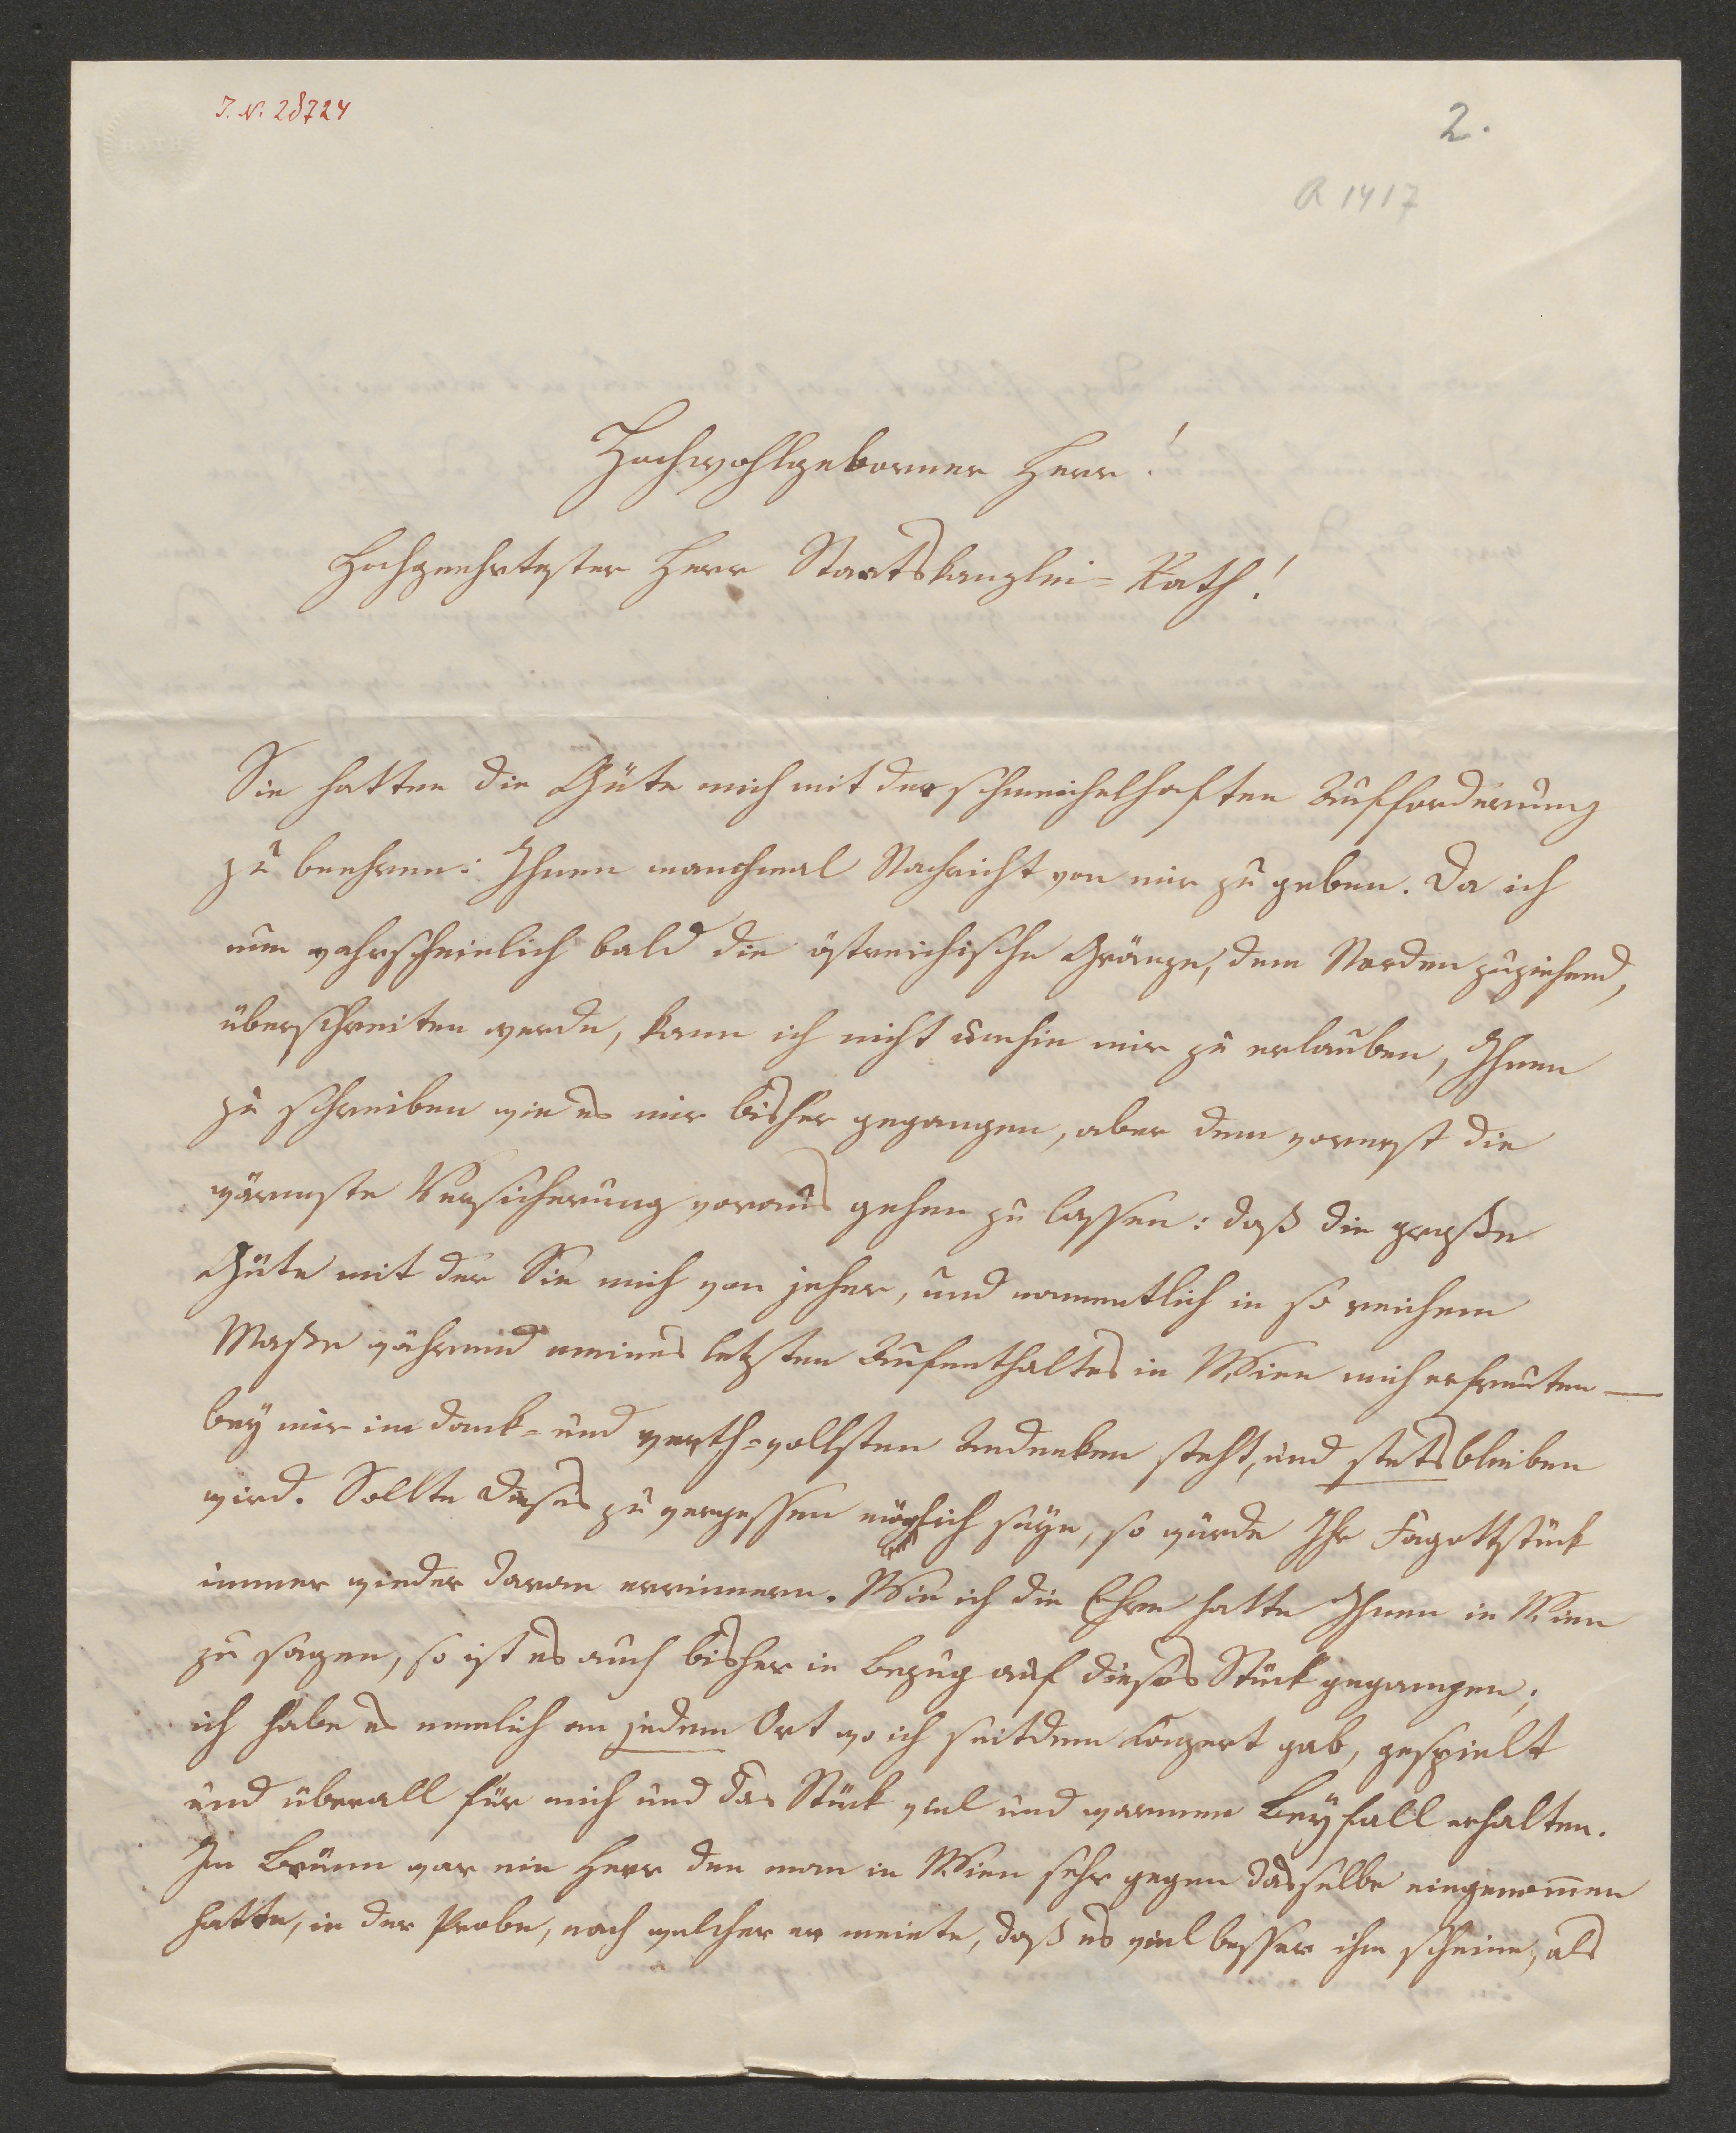 I. N. 28724
2.
R 1417
BATH
Hochwohlgeborner Herr!
Hochgeehrtester Herr Staatskanzlei=Rath!
Sie hatten die Güte mich mit der schmeichelhaften Aufforderung
zu beehren: Ihnen manchmal Nachricht von mir zu geben. Da ich
nun wahrscheinlich bald die östreichische Gränze, dem Norden zuziehend,
überschreiten werde, kann ich nicht umhin mir zu erlauben, Ihnen
zu schreiben wie es mir bisher gegangen, aber dem vorerst die
wärmste Versicherung voraus gehen zu lassen: daß die große
Güte mit der Sie mich von jeher, und namentlich in so reichem
Maße während meines letzten Aufenthaltes in Wien mich erfreuten —
bey mir im dank= und werth=vollsten Andenken steht, und stets bleiben
wird. Sollte dieses zu vergessen möglich seyn, so würde Ihr Fagottstück
immer wieder daran errinnern. Wie ich die Ehre hatte Ihnen in Wien
zu sagen, so ist es auch bisher in Bezug auf dieses Stück gegangen;
ich habe es nemlich an jedem Ort wo ich seitdem Konzert gab, gespielt
und überall für mich und das Stück viel und warmen Beyfall erhalten.
In Brünn war ein Herr den man in Wien sehr gegen dasselbe eingenom̅en
hatte, in der Probe, nach welcher er meinte, daß es viel besser ihm scheine, als